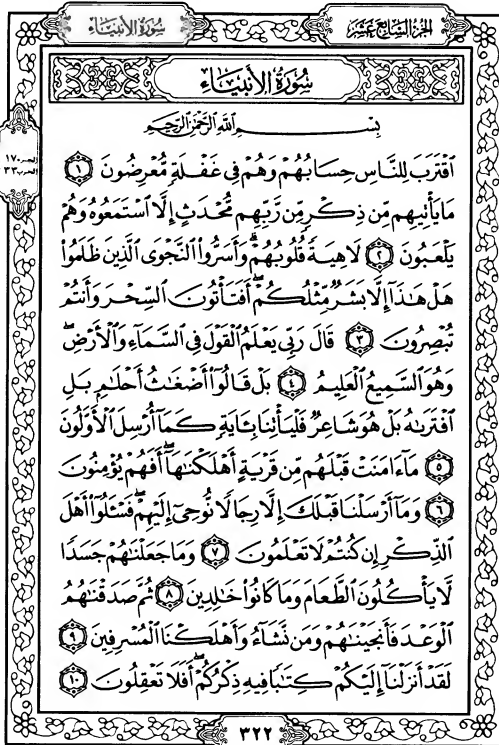 الجُزْءُ السَّابِعَ عَشَرَ
سُورَةُ الأَنبِيَاء
سُورَةُ الأَنبِيَاء
الجزء ١٧
الحزب ٣٣
بِسْمِ اللَّهِ الرَّحْمَٰنِ الرَّحِيمِ
ٱقْتَرَبَ لِلنَّاسِ حِسَابُهُمْ وَهُمْ فِى غَفْلَةٍ مُّعْرِضُونَ ١
مَا يَأْتِيهِم مِّن ذِكْرٍ مِّن رَّبِّهِم مُّحْدَثٍ إِلَّا ٱسْتَمَعُوهُ وَهُمْ
يَلْعَبُونَ ٢ لَاهِيَةً قُلُوبُهُمْ ۗ وَأَسَرُّوا۟ ٱلنَّجْوَى ٱلَّذِينَ ظَلَمُوا۟
هَلْ هَٰذَآ إِلَّا بَشَرٌ مِّثْلُكُمْ ۖ أَفَتَأْتُونَ ٱلسِّحْرَ وَأَنتُمْ
تُبْصِرُونَ ٣ قَالَ رَبِّى يَعْلَمُ ٱلْقَوْلَ فِى ٱلسَّمَآءِ وَٱلْأَرْضِ ۖ
وَهُوَ ٱلسَّمِيعُ ٱلْعَلِيمُ ٤ بَلْ قَالُوٓا۟ أَضْغَٰثُ أَحْلَٰمٍۭ بَلِ
ٱفْتَرَىٰهُ بَلْ هُوَ شَاعِرٌ فَلْيَأْتِنَا بِـَٔايَةٍ كَمَآ أُرْسِلَ ٱلْأَوَّلُونَ
٥ مَآ ءَامَنَتْ قَبْلَهُم مِّن قَرْيَةٍ أَهْلَكْنَٰهَآ ۖ أَفَهُمْ يُؤْمِنُونَ
٦ وَمَآ أَرْسَلْنَا قَبْلَكَ إِلَّا رِجَالًا نُّوحِىٓ إِلَيْهِمْ ۖ فَسْـَٔلُوٓا۟ أَهْلَ
ٱلذِّكْرِ إِن كُنتُمْ لَا تَعْلَمُونَ ٧ وَمَا جَعَلْنَٰهُمْ جَسَدًا
لَّا يَأْكُلُونَ ٱلطَّعَامَ وَمَا كَانُوا۟ خَٰلِدِينَ ٨ ثُمَّ صَدَقْنَٰهُمُ
ٱلْوَعْدَ فَأَنجَيْنَٰهُمْ وَمَن نَّشَآءُ وَأَهْلَكْنَا ٱلْمُسْرِفِينَ ٩
لَقَدْ أَنزَلْنَآ إِلَيْكُمْ كِتَٰبًا فِيهِ ذِكْرُكُمْ ۖ أَفَلَا تَعْقِلُونَ ١٠
٣٢٢